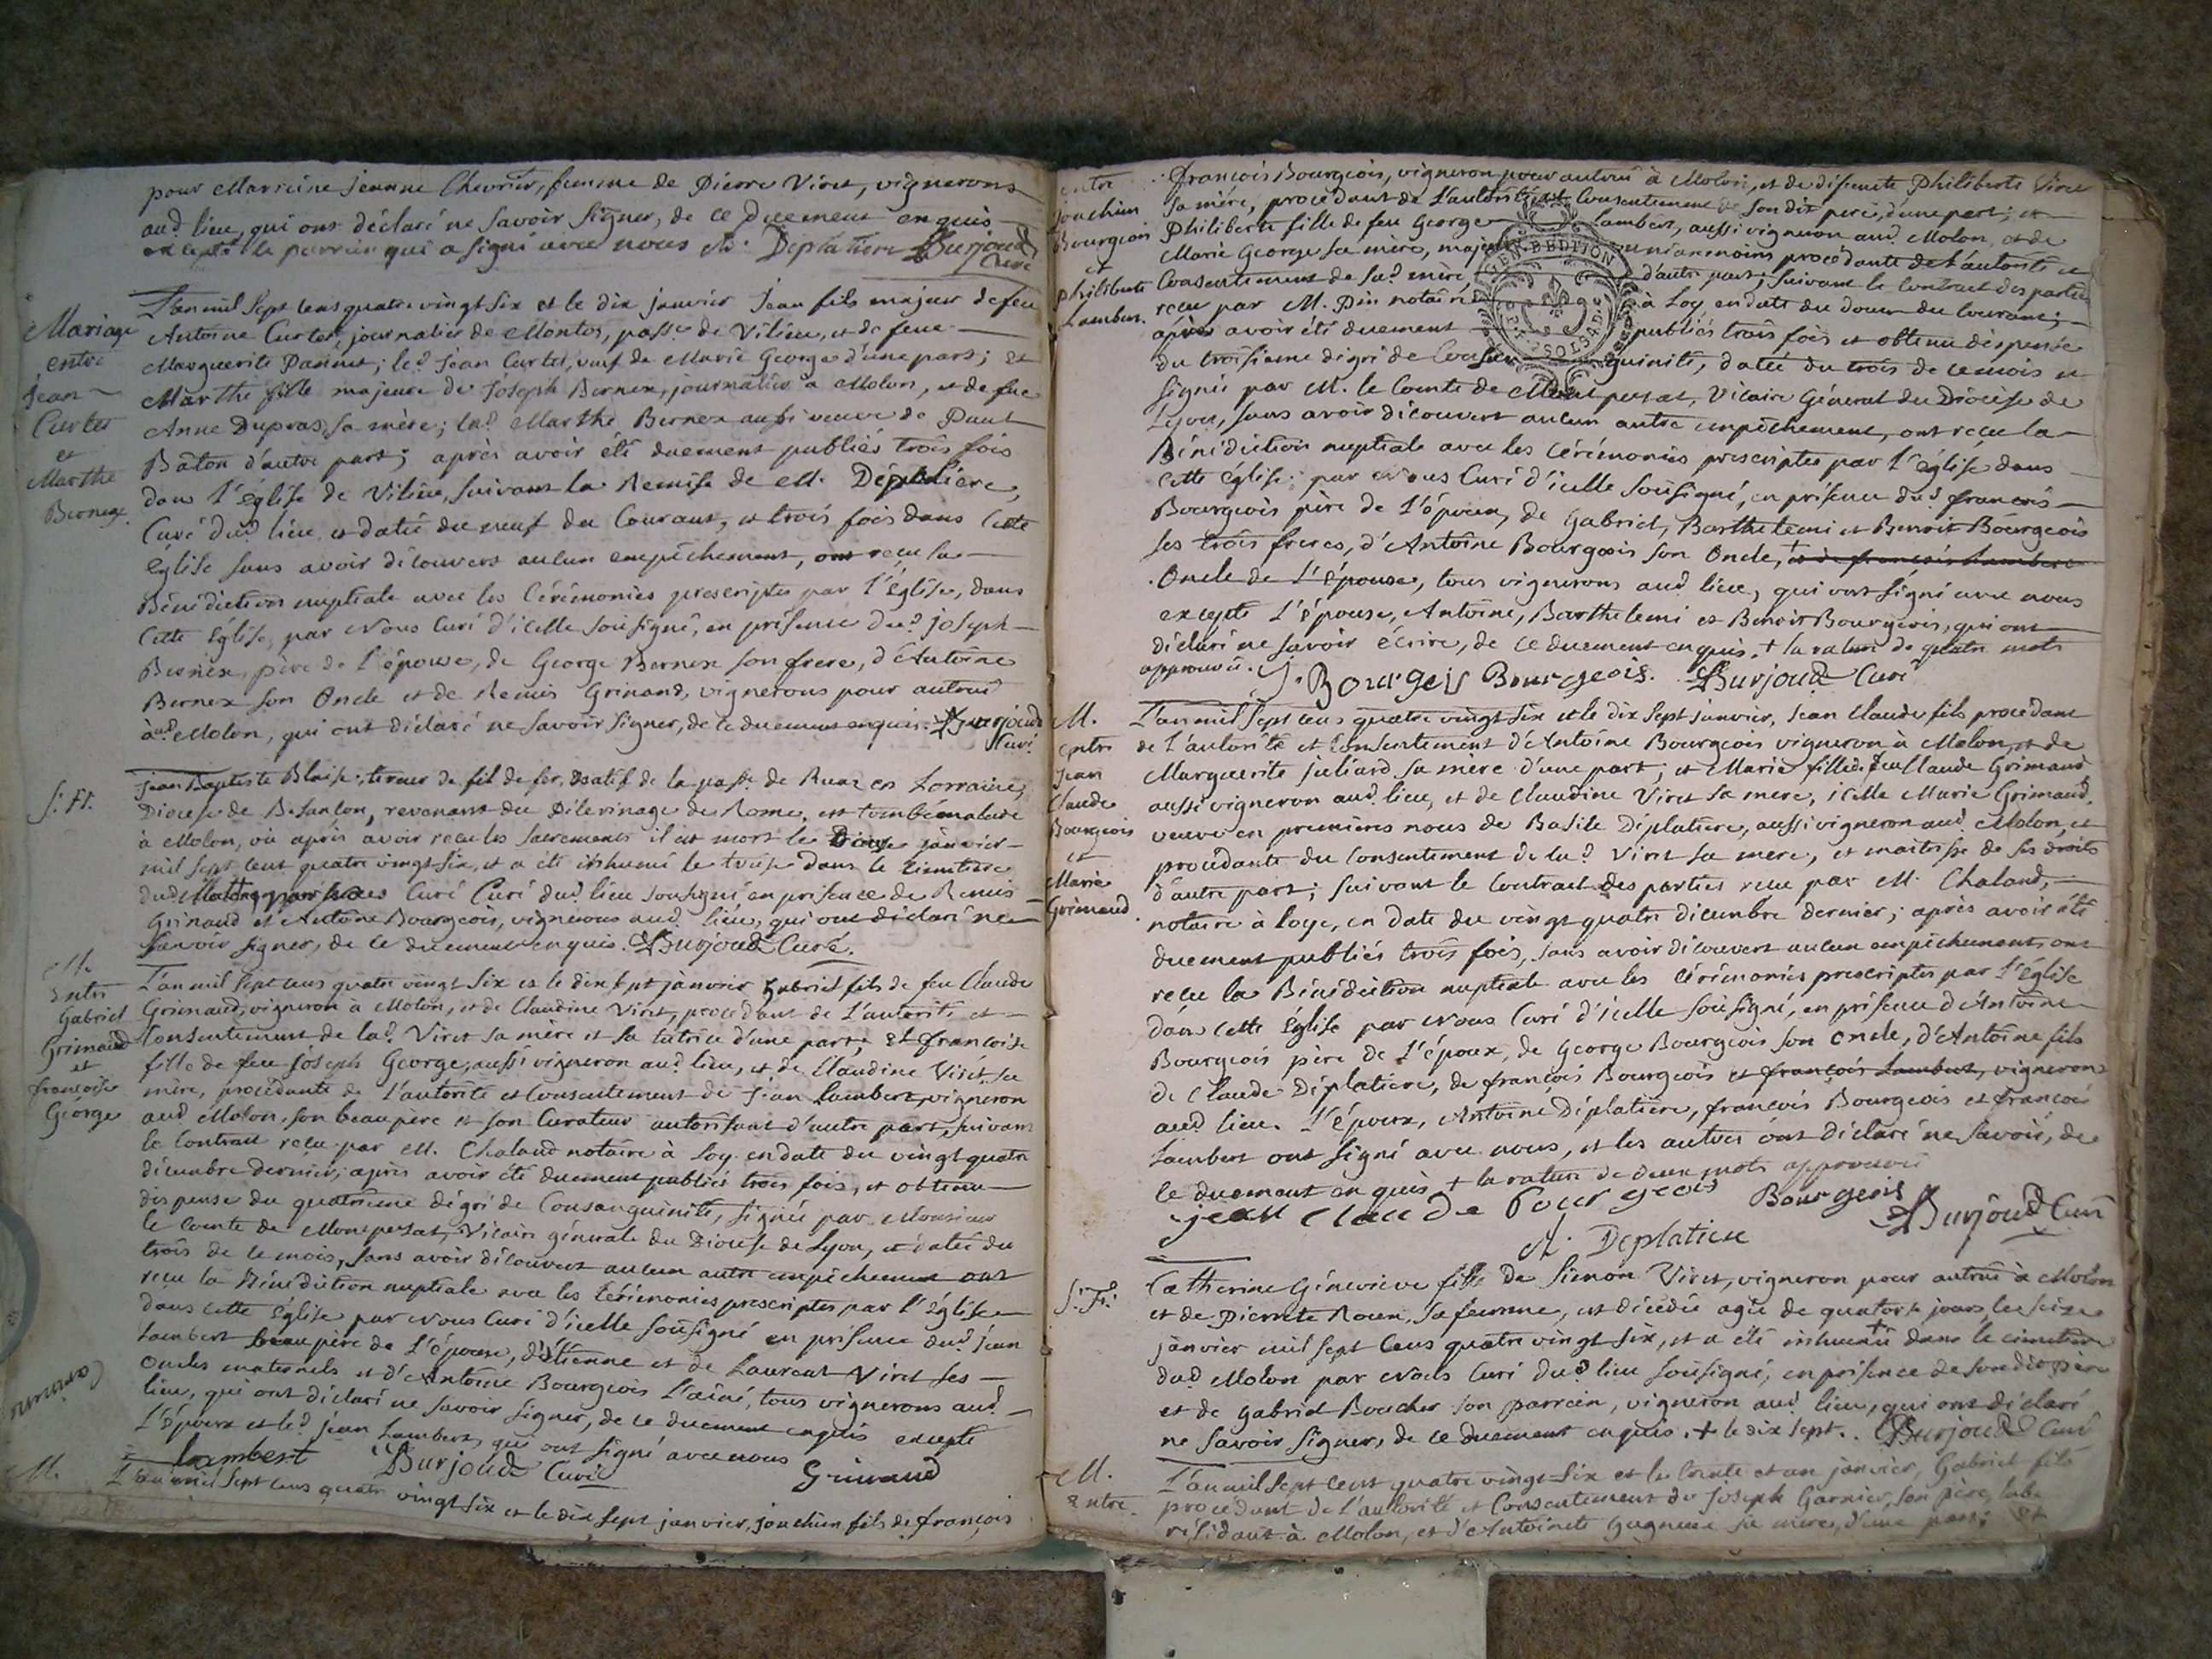 pour Marreine jeanne Chevrier, femme de Pierre Viret, vignerons
aud. lieu, qui ont déclaré ne savoir signer, de ce duement enquis
excepté le parrein qui a signé avec nous Deplatiere Burjoud
Curé
Mariage
entre
Jean
Curtet
et
Marthe
Bernex
L'an mil sept cens quatre vingt six et le dix janvier Jean fils majeur de feu
Antoine Curtet, journalier de Montos, passe de Vilieu, et de feue
Marguerite Pannet; led. Jean Curtet, veuf de Marie George d'une part; et
Marthe fille majeure de Joseph Bernex, journalier à Molon, et de feue
Anne Dupras, sa mère; lad. Marthe Bernex aussi veuve de Paul
Bâton d'autre part; après avoir été duement publiés trois fois
dans l'église de Vilieu, suivant la Remise de M. Déplatière,
Curé dud. lieu et datée du neuf du Courant, et trois fois dans Cette
église sans avoir découvert aulcun empêchement, ont reçu la
Bénédiction nuptiale avec les Cérémonies prescriptes par l'église, dans
Cette Eglise, par Nous Curé d'icelle sousigné, en présence dud. joseph
Bernex, père de l'épouse, de George Bernex son frere, d'Antoine
Bernex son Oncle et de Remis Grinand, vignerons pour autrui
aud. Molon, qui ont déclaré ne savoir signer, de ce duement enquis. Burjoud
Curé
S. Ft.
Jean Baptiste Blaise, tireur de fil de fer, natif de la passe de Ruaz en Lorraine,
Diocese de Besanlon, revenant du Pélerinage de Rome, est tombé malade
à Molon, où après avoir reçu les sacrements il est mort le Douze janvier
mil sept cent quatre vingt six, et a été inhumé le treise dans le cimetière
dud. Molon par nous Curé Curé dud. lieu sousigné en présence de Remis
Grinaud et Antoine Bourgeois, vignerons aud. lieu, qui ont déclaré ne
savoir signer, de ce duement enquis. Burjoud Curé.
M.
Entre
Gabriel
Grimaud
et
françoise
George
L'an mil sept cens quatre vingt six et le dix sept janvier Gabriel fils de feu Claude
Grimaud, vigneron à Molon, et de Claudine Viret, procédant de L'autorité et
Consentement de lad. Viret sa mère et sa tutrice d'une part; et françoise
fille de feu joseph George, aussi vigneron aud. lieu, et de Claudine Viret sa
mère, procédante de L'autorité et Consentement de jean Lambert, vigneron
aud. Molon, son beaupère et son Curateur autorisant d'autre part, suivant
le Contrat reçu par M. Chaland notaire à Loy en date du vingt quatre
décembre dernier; après avoir été duement publiés trois fois, et obtenu
dispense du quatrieme dégré de Consanguinité, signée par Monsieur
le Comte de Montpezat, Vicaire générale du Diocese de Lyon, et datée du
trois de ce mois, sans avoir découvert aulcun autre empêchement ont
reçu la Bénédiction nuptiale avec les Cérémonies prescriptes par l'église
dans cette Eglise par Nous Curé d'icelle sousigné en présence dud. jean
Lambert beaupère de L'épouse, d'Etienne et de Laurent Viret ses
oncles maternels et d'Antoine Bourgeois L'ainé, tous vignerons aud.
lieu, qui ont déclaré ne savoir signer, de ce duement enquis excepté
L'époux et led. jean Lambert, qui ont signé avec nous
lambert Burjoud Curé Grimaud
M.
L'an mil sept cens quatre vingt six et le dix sept janvier, joachim fils de françois
entre
joachim
Bourgeois
et
philiberte
Lambert.
françois Bourgeois, vigneron pour autrui à Molon, et de défuncte Philiberte Viret
sa mére, procédant de L'autorité et Consentement de son dit père, d'une part; et
Philiberte fille de feu George Lambert, aussi vigneron aud. Molon, et de
Marie George sa mère, néanmoins procédante de l'autorité et
Consentement de sad. mère, d'autre part; suivant le Contract des parties
reçu par M. Pin notaire à Loy, en date du douze du Courant;
après avoir été duement publiés trois fois et obtenu dispense
du troisieme dégré de Consanguinité, datée du trois de ce mois et
signée par M. le Comte de Montpezat, Vicaire Géneral du Diocèse de
Lyon, sans avoir découvert aulcun autre empêchement, ont reçu la
Bénédiction nuptiale avec les Cérémonies prescriptes par l'église dans
cette église; par Nous Curé d'icelle sousigné, en présence dud. françois
Bourgeois père de l'époux, de Gabriel, Barthelemi et Benoit Bourgeois
ses trois freres, d'Antoine Bourgeois son Oncle, + et de françois Lambert
Oncle de L'épouse, tous vignerons aud. lieu, qui ont signé avec nous
excepté L'épouse, Antoine, Barthelemi et Benoit Bourgeois, qui ont
déclaré ne savoir écrire, de ce duement enquis. + la rature de quatre mots
approuvée. J. Bourgeis Bourgeois. Burjoud Curé
M.
entre
Jean
Claude
Bourgeois
et
Marie
Grimaud.
L'an mil sept cens quatre vingt six et le dix sept janvier, Jean Claude fils procédant
de L'autorité et Consentement d'Antoine Bourgeois vigneron à Molon, et de
Marguerite juliard sa mère d'une part; et Marie fille de feu Claude Grimaud
aussi vigneron aud. lieu, et de Claudine Viret sa mere, icelle Marie Grimaud,
veuve en premières noces de Basile Déplatiere, aussi vigneron aud. Molon, et
procédante du Consentement de lad. Viret sa mere, et maitresse de ses droits
d'autre part; suivant le Contract des parties reçu par M. Chaland,
notaire à Loye, en date du vingt quatre décembre dernier; après avoir été
duement publiés trois fois, sans avoir découvert aulcun empêchement, ont
reçu la Bénédiction nuptiale avec les Cérémonies prescriptes par L'église
dans cette Eglise par Nous Curé d'icelle sousigné, en présence d'Antoine
Bourgeois père de L'époux, de George Bourgeois son oncle, d'Antoine fils
de Claude Déplatiere, de françois Bourgeois et françois Lambert, vignerons
aud. lieu. L'époux, Antoine Déplatiere, françois Bourgeois et françois
Lambert ont signé avec nous, et les autres ont déclaré ne savoir, de
ce duement enquis + la rature de deux mots approuvée
jean claude Bourgeois Bourgeois Burjoud Curé
A. Deplatiere
S. Ft.
Catherine Génevieve fille de Simon Viret, vigneron pour autrui à Molon
et de Pierrete Roux, sa femme, est décédée agée de quatorze jours, le seize
janvier mil sept cens quatre vingt six, et a été inhumée + dans le cimetière
dud. Molon par Nous Curé dud. lieu sousigné, en présence de son dit père
et de Gabriel Boucher son parrein, vigneron aud. lieu, qui ont déclaré
ne savoir signer, de ce duement enquis. + le dix sept. Burjoud Curé
M.
Entre
L'an mil sept cent quatre vingt six et le trente et un janvier, Gabriel fils
procédant de l'autorité et Consentement de Joseph Garnier, son père,
résidant à Molon, et d'Antoinete sa mère, d'une part; et